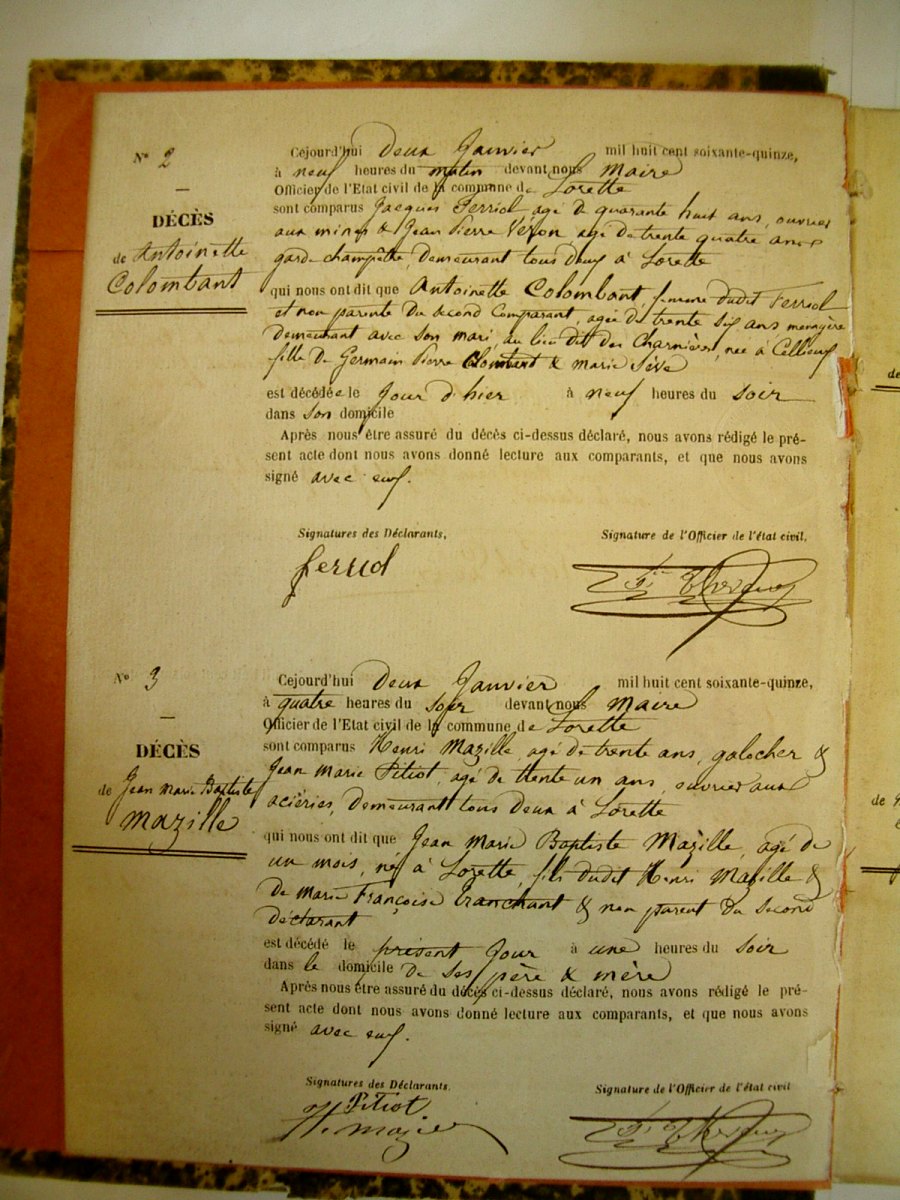 N° 2
DÉCÈS
de Antoinette
Colombant
Cejourd'hui deux Janvier mil huit cent soixante-quinze,
à neuf heures du matin devant nous Maire
Officier de l'Etat civil de la commune de Lorette
sont comparus Jacques Ferriol, agé de quarante huit ans, ouvrier
aux mines & Jean Pierre Véron agé de trente quatre ans
garde champêtre, demeurant tous deux à Lorette
qui nous ont dit que Antoinette Colombant, femme dudit Ferriol
et non parente du second Comparant, agée de trente six ans menagère
demeurant avec son mari, au lieu dit des Charnières, née à Cellieux
fille de Germain Pierre Colombant & Marie Sève
est décédée le jour d'hier à neuf heures du soir
dans son domicile
Après nous être assuré du décès ci-dessus déclaré, nous avons rédigé le pré-
sent acte dont nous avons donné lecture aux comparants, et que nous avons
signé avec eux.
Signatures des Déclarants,
Signature de l'Officier de l'état civil,
N° 3
DÉCÈS
de Jean Marie Baptiste
Mazille
Cejourd'hui deux Janvier mil huit cent soixante-quinze,
à quatre heures du soir devant nous Maire
Officier de l'Etat civil de la commune de Lorette
sont comparus Henri Mazille agé de trente ans, galocher &
Jean Marie Pitiot, agé de trente un ans, ouvrier aux
aciéries, demeurant tous deux à Lorette
qui nous ont dit que Jean Marie Baptiste Mazille, agé de
un mois, né à Lorette, fils dudit Henri Mazille &
de Marie Françoise Tranchant & non parent du second
déclarant
est décédé le présent jour à une heures du soir
dans le domicile de ses père & mère
Après nous être assuré du décès ci-dessus déclaré, nous avons rédigé le pré-
sent acte dont nous avons donné lecture aux comparants, et que nous avons
signé avec eux.
Signatures des Déclarants,
Signature de l'Officier de l'état civil
Pitiot
de
de